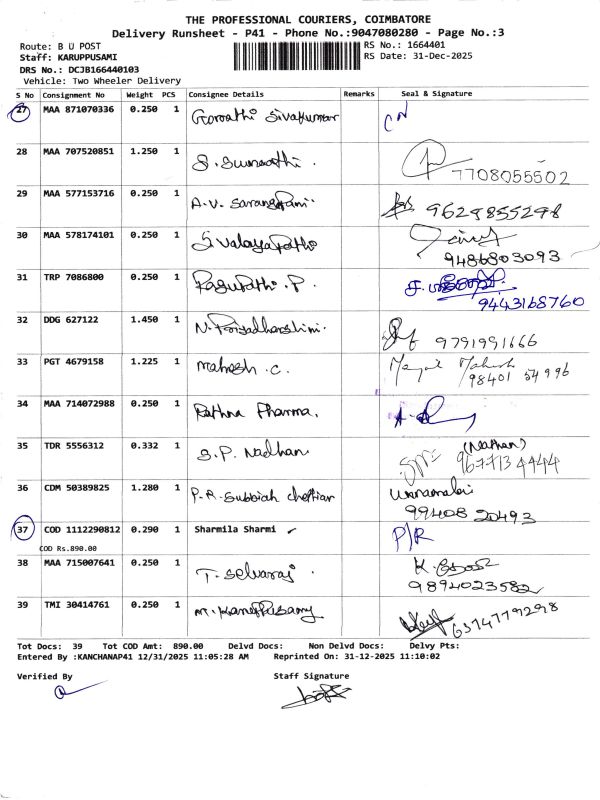 THE PROFESSIONAL COURIERS, COIMBATORE
Delivery Runsheet - P41 - Phone No.:9047080280 - Page No.:3
Route: B U POST
RS No.: 1664401
Staff: KARUPPUSAMI
RS Date: 31-Dec-2025
DRS No.: DCJB166440103
Vehicle: Two Wheeler Delivery
S No Consignment No Weight PCS Consignee Details Remarks Seal & Signature
27 MAA 871070336 0.250 1 Sivakumar CN
28 MAA 707520851 1.250 1 S. Sumathi . 7708055502
29 MAA 577153716 0.250 1 A.V. 9629855298
30 MAA 578174101 0.250 1 9486803093
31 TRP 7086800 0.250 1 Ragupathi . P. 9443168760
32 DDG 627122 1.450 1 N. Priyadharshini. 9791991666
33 PGT 4679158 1.225 1 Mahesh . C. 98401 54996
34 MAA 714072988 0.250 1 Rathna Pharma.
35 TDR 5556312 0.332 1 S. P. Nadhan (Nathan) 967713 4444
36 CDM 50389825 1.280 1 P. R. Subbiah Chettiar 99408 20493
37 COD 1112290812 0.290 1 Sharmila Sharmi ✓ P/R
COD Rs.890.00
38 MAA 715007641 0.250 1 T. Selvaraj . 9894023582
39 TMI 30414761 0.250 1 M. Kanappasamy
Tot Docs: 39 Tot COD Amt: 890.00 Delvd Docs: Non Delvd Docs: Delvy Pts:
Entered By :KANCHANAP41 12/31/2025 11:05:28 AM Reprinted On: 31-12-2025 11:10:02
Verified By Staff Signature